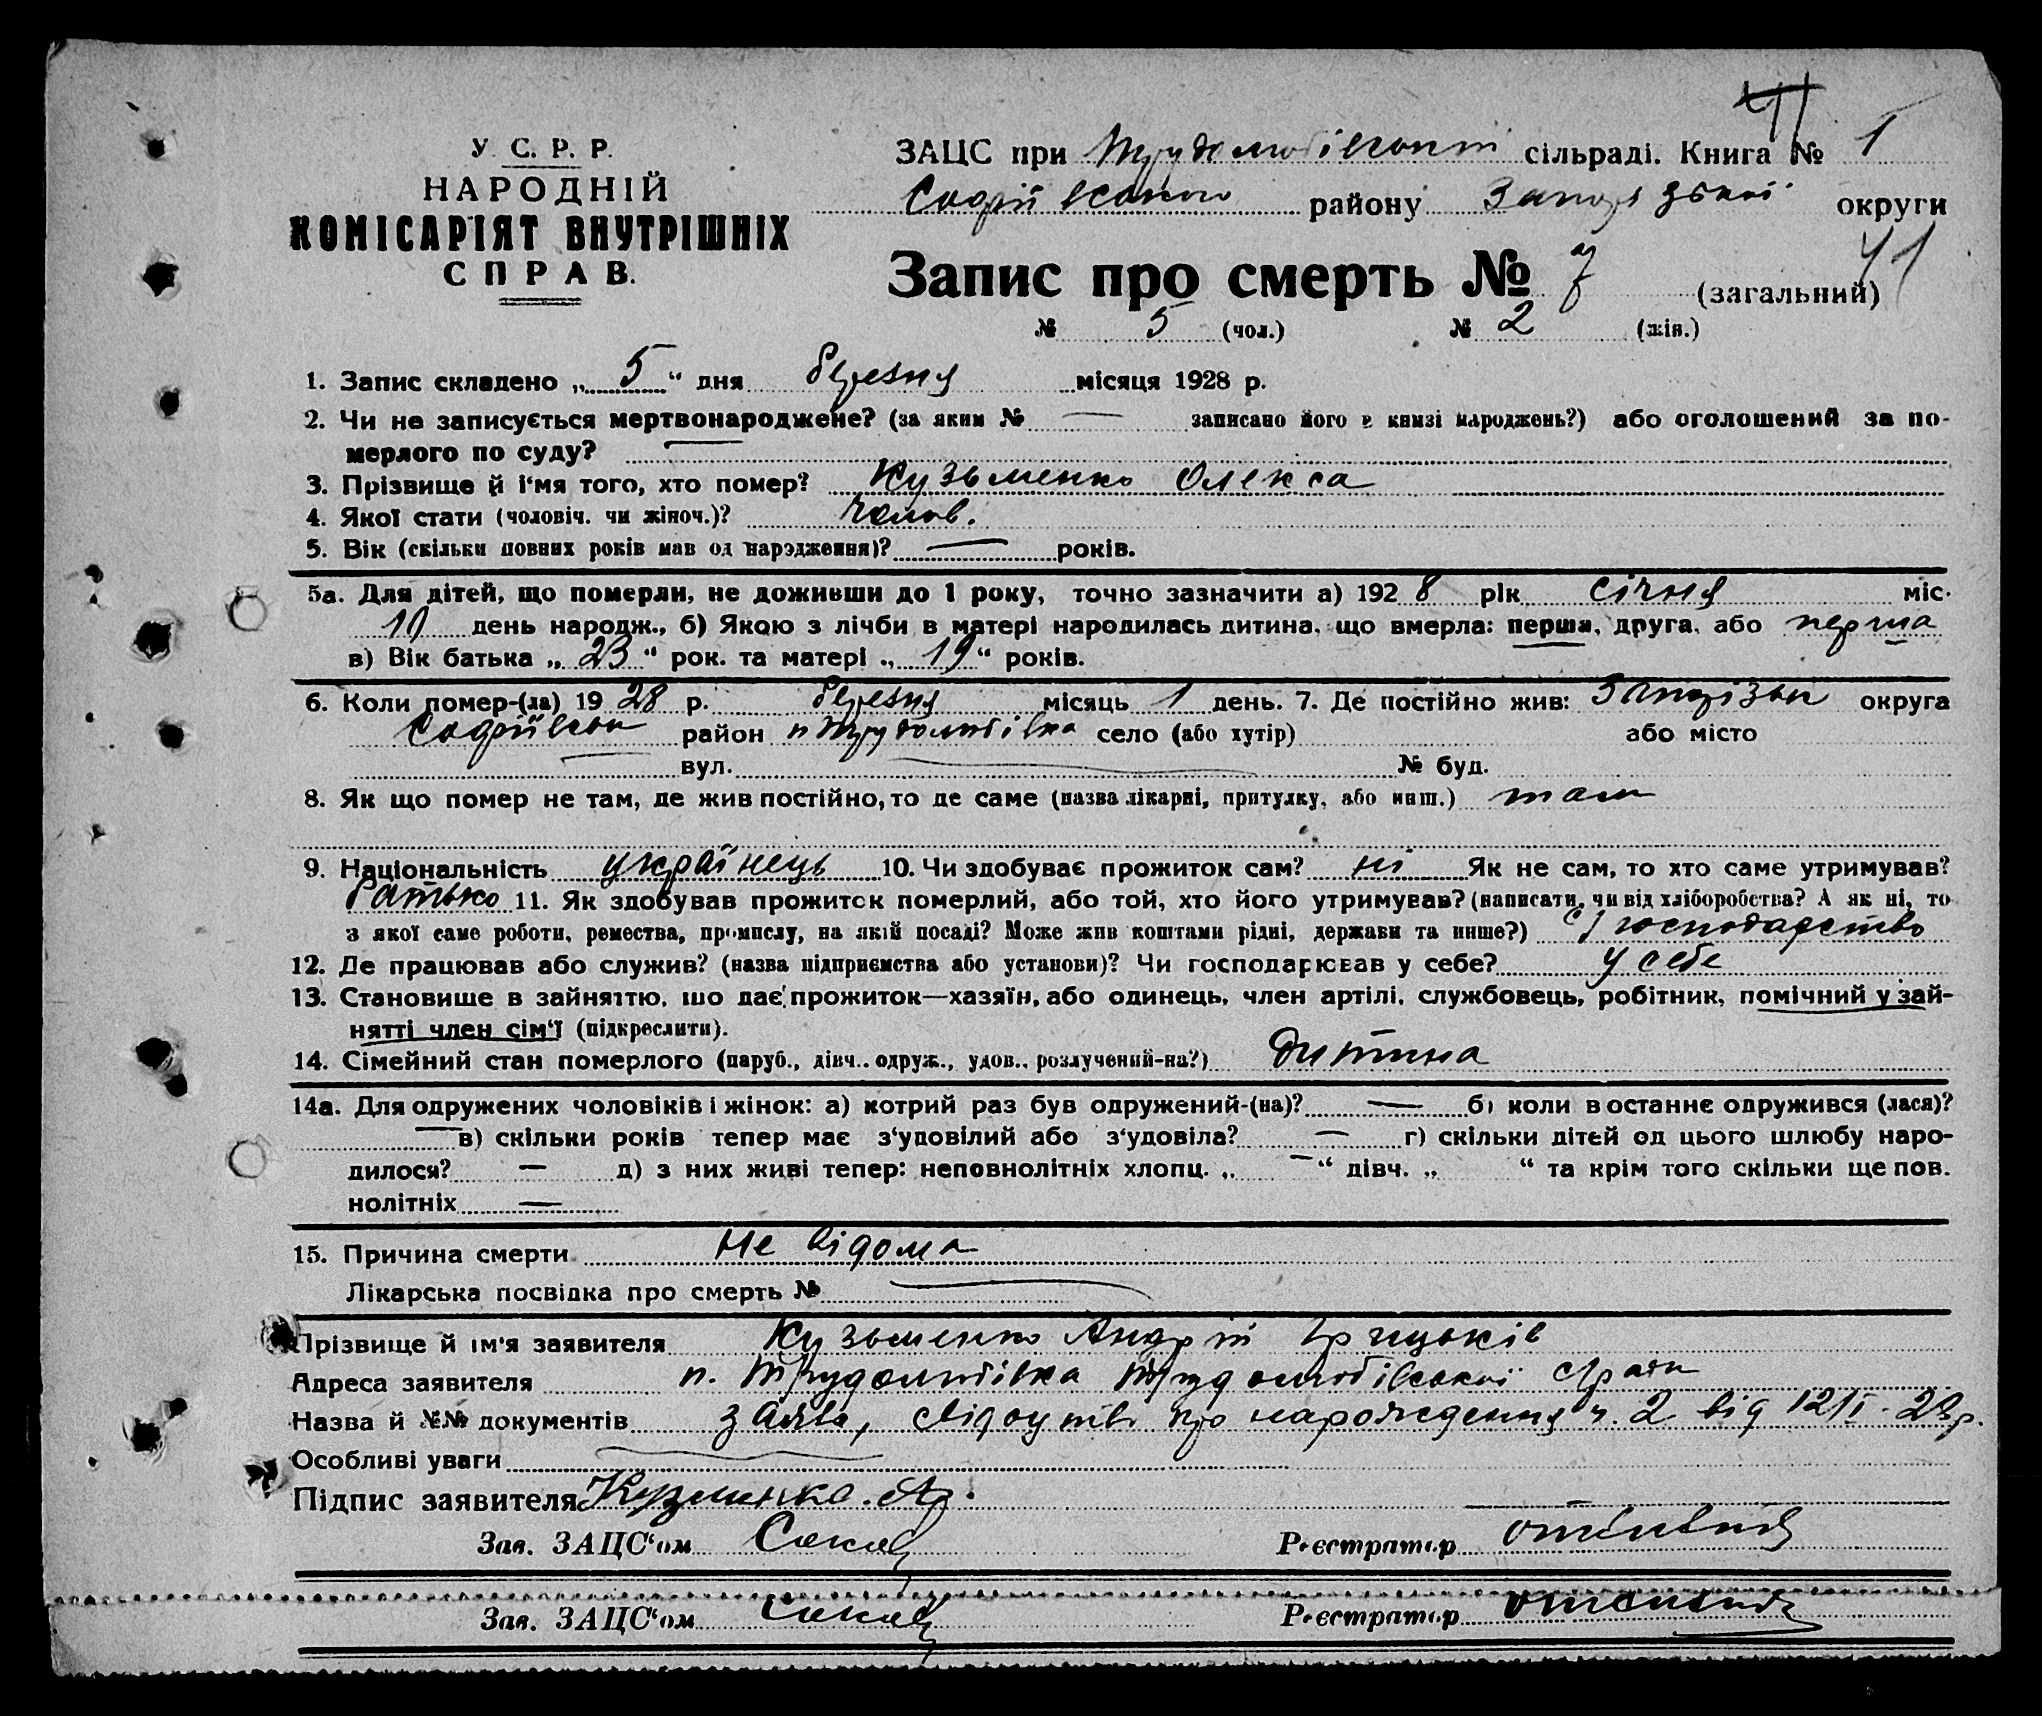 41
У. С. Р. Р.
НАРОДНІЙ
КОМІСАРІЯТ ВНУТРІШНІХ
СПРАВ.
ЗАЦС при Трудолюбівскат сільраді. Книга № 1
Софіївского району Запорізької округи
41
Запис про смерть № 7 (загальний)
№ 5 (чол.) № 2 (жін.)
1. Запис складено „ 5 “ дня березня місяця 1928 р.
2. Чи не записується мертвонароджене? (за яким № — записано його в книзі народжень?) або оголошений за по-
мерлого по суду? —
3. Прізвище й і‘мя того, хто помер? Кузьменко Олекса
4. Якої стати (чоловіч. чи жіноч.)? Чолов.
5. Вік (скільки повних років мав од народження)? — років.
5а. Для дітей, що померли, не доживши до 1 року, точно зазначити а) 1928 рік січня міс.
10 день народж., б) Якою з лічби в матері народилась дитина, що вмерла: перша, друга, або перша
в) Вік батька „ 23 “ рок. та матері „ 19 “ років.
6. Коли помер-(ла) 1928 р. березня місяць 1 день. 7. Де постійно жив: Запорізьк округа
Софіївськ район п Трудолюбівка село (або хутір) або місто
вул. — № буд.
8. Як що помер не там, де жив постійно, то де саме (назва лікарні, притулку, або инш.) там
9. Національність українець 10. Чи здобуває прожиток сам? ні Як не сам, то хто саме утримував?
Батько 11. Як здобував прожиток померлий, або той, хто його утримував? (написати, чи від хліборобства? А як ні, то
з якої саме роботи, ремества, промислу, на якій посаді? Може жив коштами рідні, держави та инше?) с/господарство
12. Де працював або служив? (назва підприємства або установи)? Чи господарював у себе? у себе
13. Становише в зайняттю, шо дає прожиток—хазяїн, або одинець, член артілі, службовець, робітник, помічний у зай-
нятті член сім‘ї (підкреслити).
14. Сімейний стан померлого (паруб., дівч., одруж., удов., розлучений-на?) дитина
14а. Для одружених чоловіків і жінок: а) котрий раз був одружений-(на)? — б) коли в останнє одружився (лася)?
— в) скільки років тепер має з‘удовілий або з‘удовіла? — г) скільки дітей од цього шлюбу наро-
дилося? — д) з них живі тепер: неповнолітніх хлопц. „ — “ дівч. „ “ та крім того скільки ще пов.
нолітніх —
15. Причина смерти Не відома
Лікарська посвідка про смерть № —
Прізвище й ім‘я заявителя Кузьменко Андрій Грицьків
Адреса заявителя п. Трудолюбівка Трудолюбівської с/ради
Назва й №№ документів заява, свідоцтво про народження ч. 2 від 12/I-28р.
Особливі уваги —
Підпис заявителя Кузминка. Ад.
Зав. ЗАЦС‘ом
Реєстратор
Зав. ЗАЦС‘ом
Реєстратор